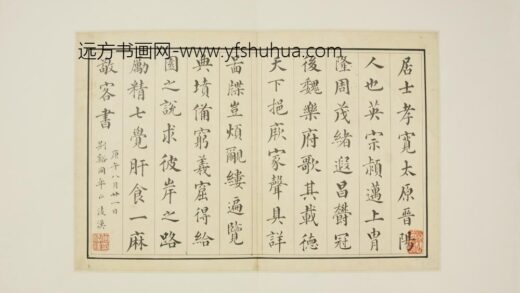 远方书画网-www.yfshuhua.com
居士孝寬太原晉陽
人也英宗頴邁上冑
隆周茂緒遐昌欝冠
後魏樂府歌其載德
天下挹厥家聲具詳
啚牒豈煩覼縷遍覽
典墳備窮義窟得給
園之說求彼岸之路
勵精七覺肝食一麻
敬客書
庚午八月廿一日